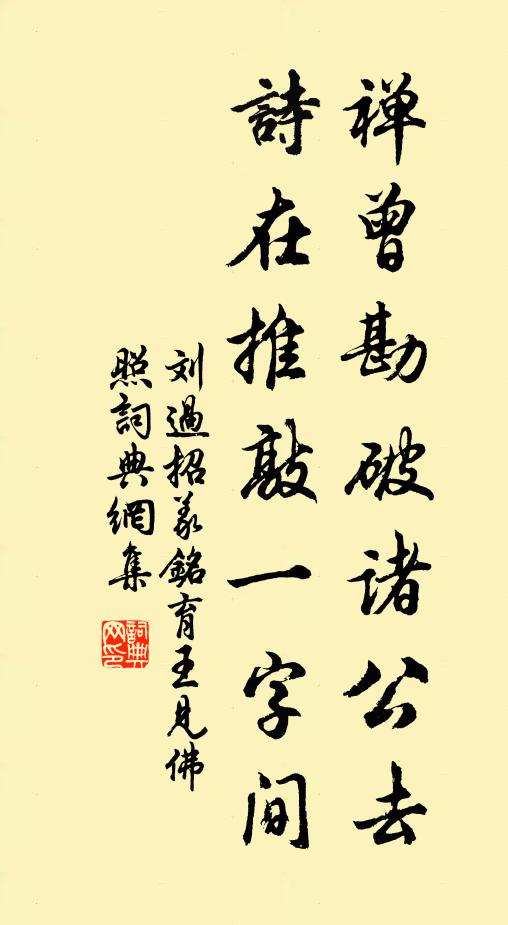 禅曾勘破诸公去
詩在推敲一字间
刘過招義銘育王見佛
照詞典網集
詞典网印